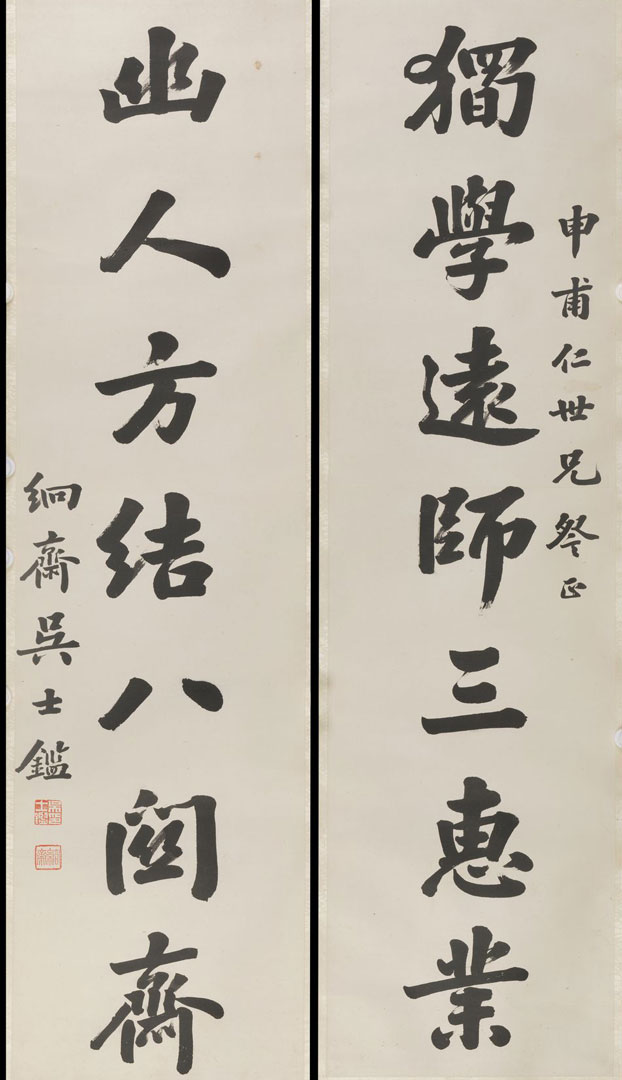 申甫仁世兄詧正
獨學遠師三惠業
幽人方結八關齋
絅齋吳士鑑